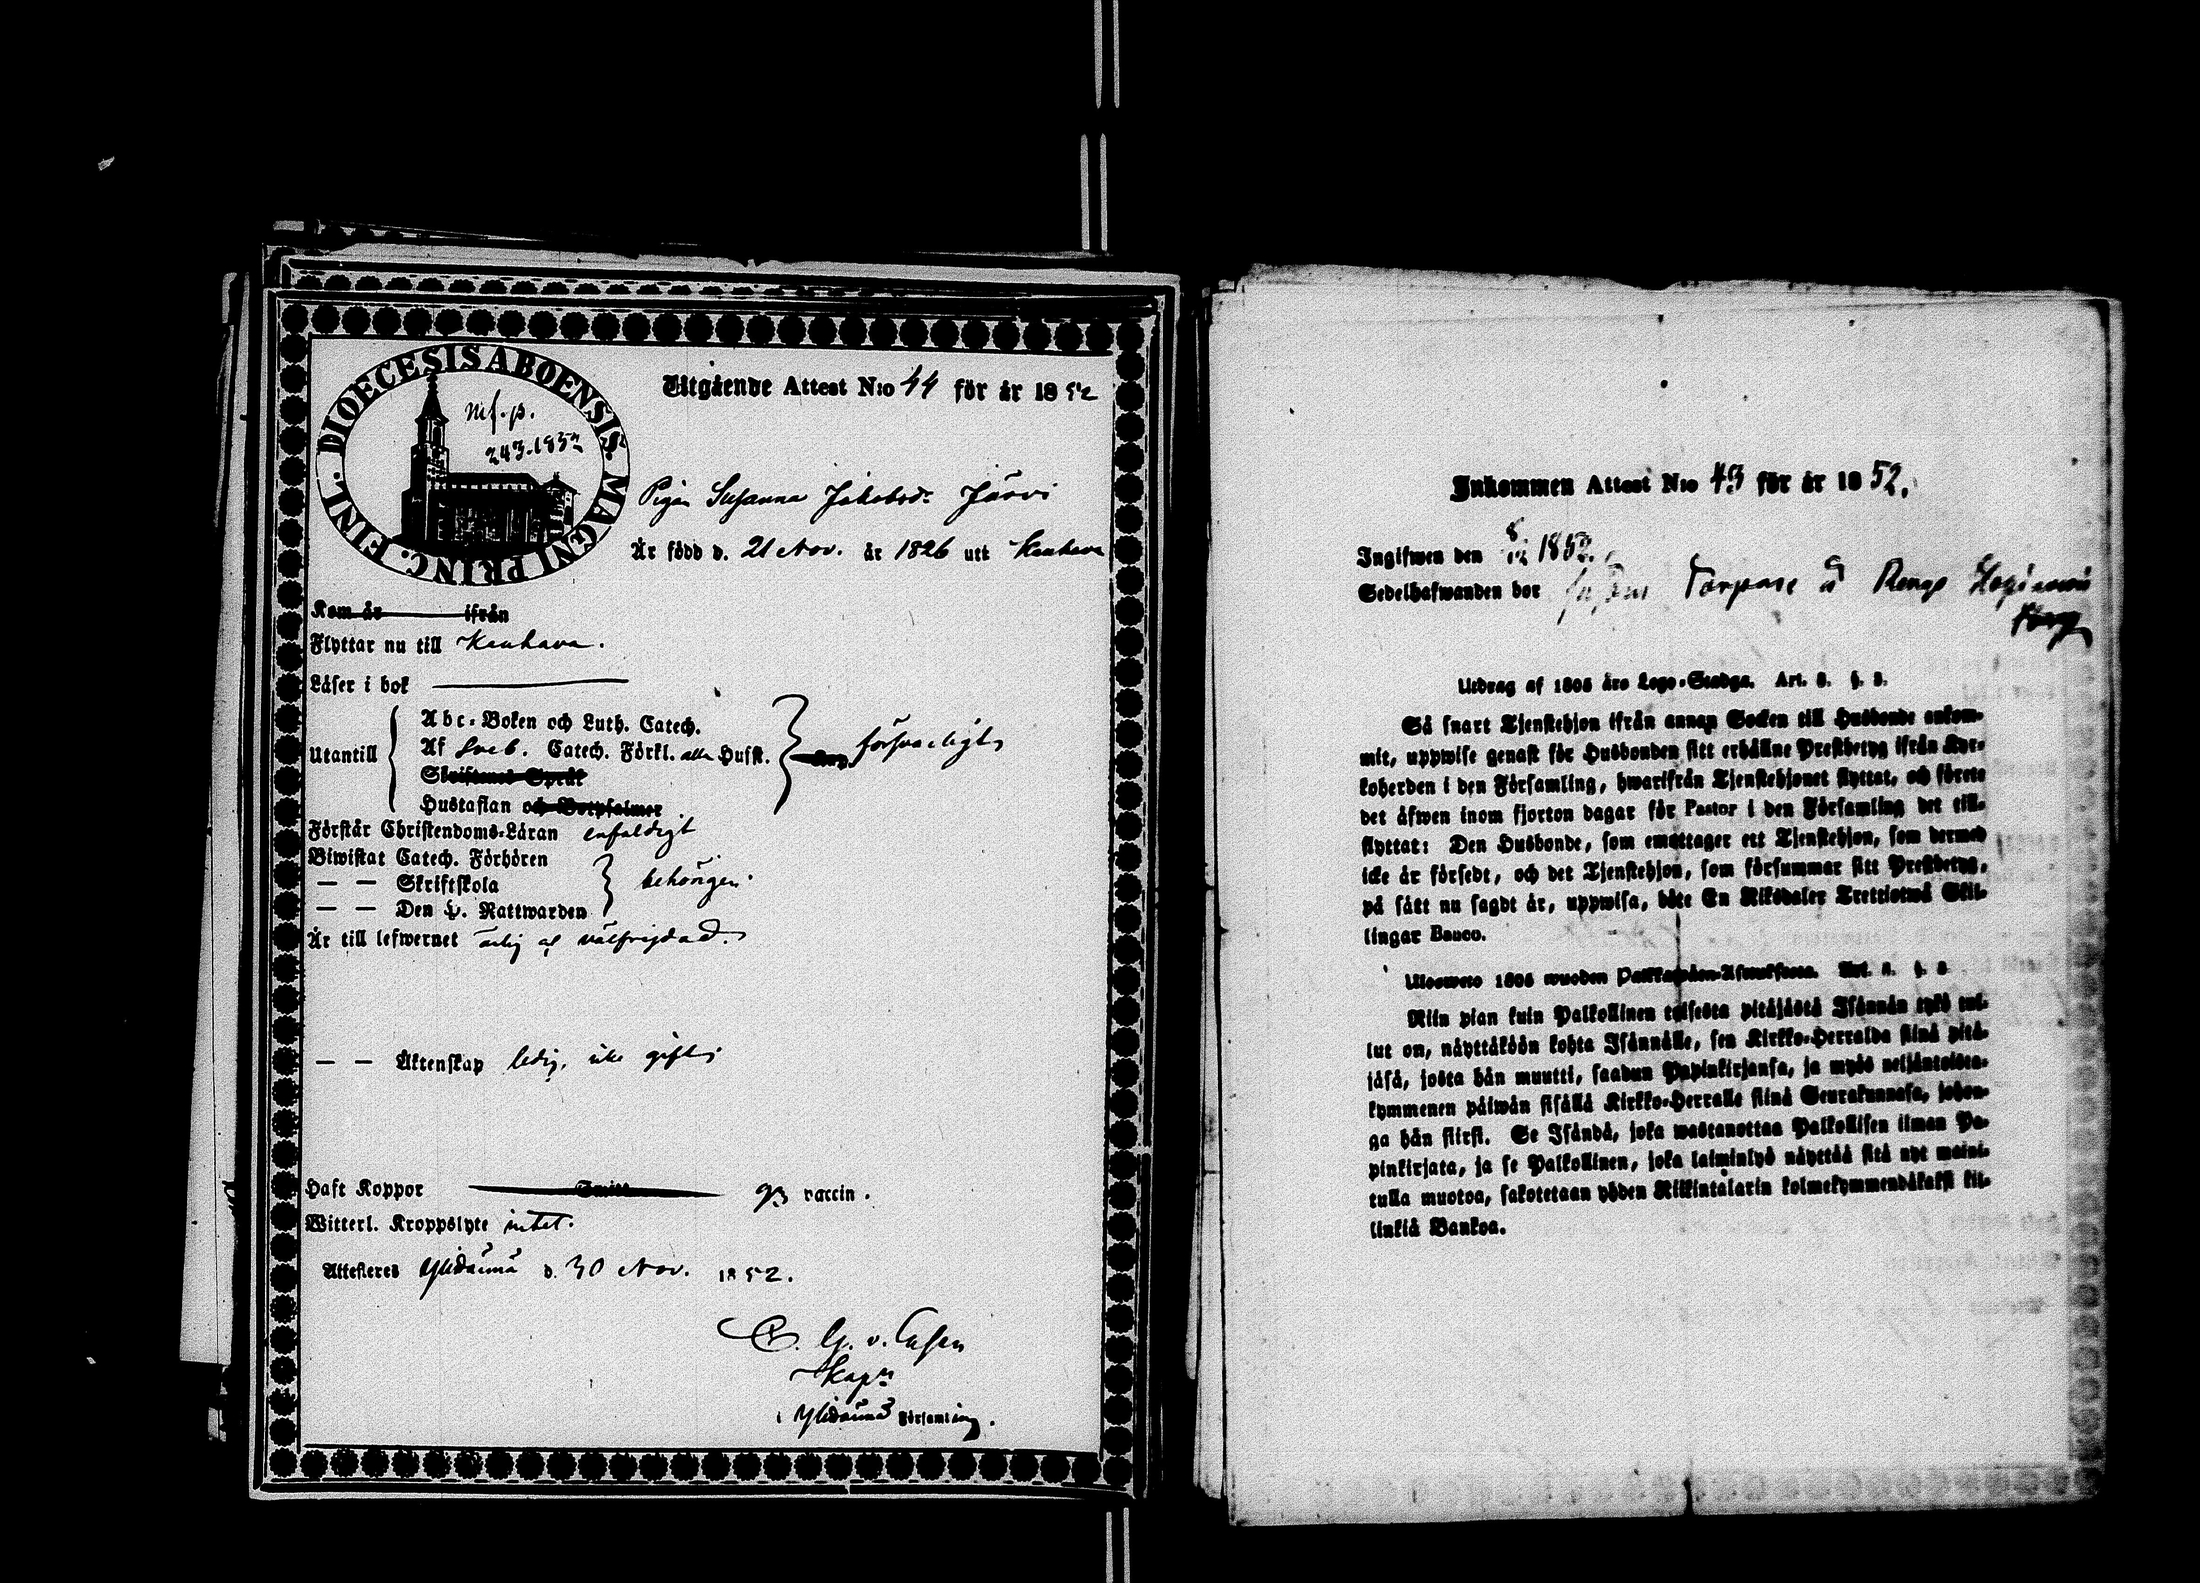 DIOECESIS ABOENSIS. MAGNI PRINC. FINL.
mf. p.
243. 1852
Utgående Attest N:o 44 för år 1852
Pigan Susanna Jakobsdr Järvi
Är född d. 21 Nov. år 1826 utt Kauhava
Kom år ifrån
Flyttar nu till Kauhava.
Läser i bok
Utantill
Abc-Boken och Luth. Catech.
Af Sveb. Catech. Förkl. alla Husst.
Skriftenes Språk
Hustaflan och Botpsalmer
försvarligt
Förstår Christendoms-Läran enfaldigt
Biwistat Catech. Förhören
— — Skriftskola
— — Den H. Nattwarden
behörigen
Är till lefwernet ärlig och välfrejdad.
— — Äktenskap ledig, icke gift
Haft Koppor vaccin.
Witterl. Kroppslyte intet.
Attesteras Ylistaro d. 30 Nov. 1852.
Kapn
i Församling.
Inkommen Attest N:o 43 för år 1852.
Ingifwen den 8/12 1852.
Sedelhafwanden bor Torpare å
Utdrag af 1805 års Lego-Stadga. Art. 3. §. 3.
Så snart Tjenstehjon ifrån annan Socken till Husbonde ankom-
mit, uppwise genast för Husbonden sitt erhållne Prestbetyg ifrån Kyr-
koherden i den Församling, hwarifrån Tjenstehjonet flyttat, och förete
det äfwen inom fjorton dagar för Pastor i den Församling det till-
flyttat: Den Husbonde, som emottager ett Tjenstehjon, som dermed
icke är försedt, och det Tjenstehjon, som försummar sitt Prestbetyg,
på sätt nu sagdt är, uppwisa, böte En Riksdaler Trettiotwå Skil-
lingar Banco.
Ulosweto 1805 wuoden Palkkawäen-Asetuksesta. Art. 3. §. 3
Niin pian kuin Palkollinen toisesta pitäjästä Isännän tykö tul-
lut on, näyttäköön kohta Isännälle, sen Kirkko-Herralda siinä pitä-
jäsä, josta hän muutti, saadun Papinkirjansa, ja myös neljäntoista-
kymmenen päiwän sisällä Kirkko-Herralle siinä Seurakunnasa, johon-
ga hän siirsi. Se Isändä, joka wastanottaa Palkollisen ilman Pa-
pinkirjata, ja se Palkollinen, joka laiminlyö näyttää sitä nyt maini-
tulla muotoa, sakotetaan yhden Riikintalarin kolmekymmendäkaksi kil-
linkiä Bankoa.